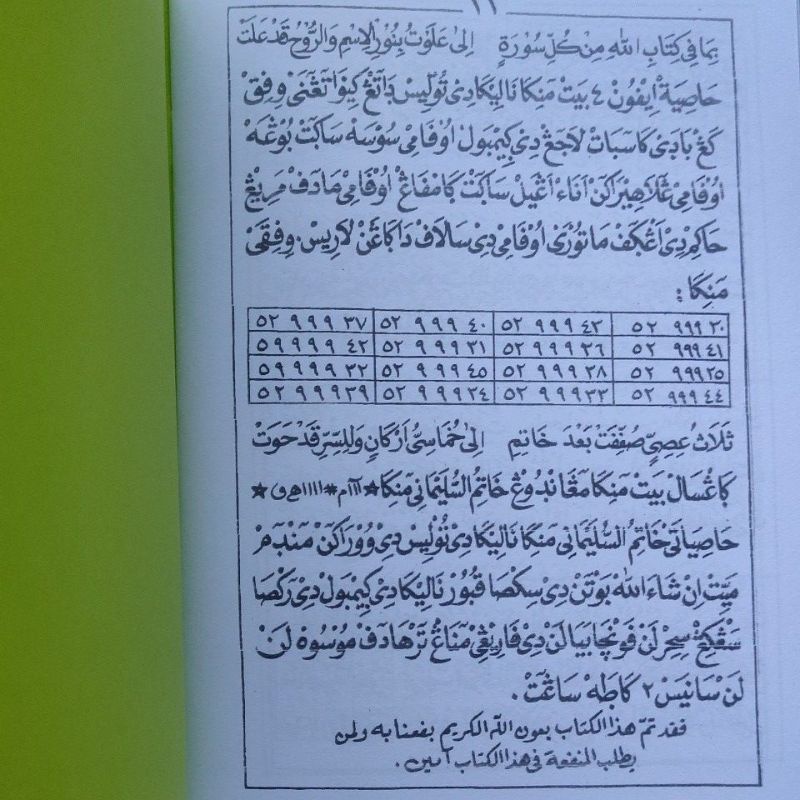 ١١
بِمَا فِي كِتَابِ اللهِ مِنْ كُلِّ سُوْرَةٍ إِلَى عَلَوْتُ بِنُوْرِ الْإِسْمِ وَالرُّوْحُ قَدْ عَلَتْ
خَاصِيَةْ اَيْفُوْنْ ٤ بَيْتْ مَنِيْكَا نَالِيْكَا دِيْ تُوْلِيْسْ بَاتَڠْ كِيْنَوَا تَڠَنَيْ وِفِقْ
كَڠْ بَادَيْ كَاسَبَاتْ لَاجَڠْ دِيْ كِيْمْبَوْلْ اُوْفَامِيْ سُوْسَهْ سَاكَتْ بُوْڠَهْ
اُوْفَامِيْ ڠَلَاهِيْرَاكَنْ اَنَاءْ اَڠَيْلْ سَاكَتْ كَامْفَاڠْ اُوْفَامِيْ مَادَفْ مَرِيْڠْ
حَاكِمْ دِيْ اَڠْكَفْ مَاتُوْرَيْ اُوْفَامِيْ دِيْ سَالَافْ دَاكَاڠَنْ لَارِيْسْ. وِفِقَيْ
مَنِيْكَا :
٥٢ ٩٩٩ ٣٠ ٥٢ ٩٩٩ ٤٣ ٥٢ ٩٩٩ ٤٠ ٥٢ ٩٩٩ ٣٧
٥٢ ٩٩٩ ٤١ ٥٢ ٩٩٩ ٣٦ ٥٢ ٩٩٩ ٣١ ٥٩ ٩٩٩ ٤٢
٥٢ ٩٩٩ ٢٥ ٥٢ ٩٩٩ ٣٨ ٥٢ ٩٩٩ ٤٥ ٥٩ ٩٩٩ ٣٢
٥٢ ٩٩٩ ٤٤ ٥٢ ٩٩٩ ٣٣ ٥٢ ٩٩٩ ٣٤ ٥٢ ٩٩٩ ٣٩
ثَلَاثُ عِصِيٍّ صُفِّفَتْ بَعْدَ خَاتِمٍ إِلَى خُمَاسِيِّ أَرْكَانٍ وَلِلسِّرِّ قَدْ حَوَتْ
كَاڠْسَالْ بَيْتْ مَنِيْكَا مَڠَانْدُوْڠْ خَاتِمُ السُّلَيْمَانِيْ مَنِيْكَا
خَاصِيَاتَيْ خَاتِمُ السُّلَيْمَانِيْ مَنِيْكَا نَالِيْكَا دِيْ تُوْلِيْسْ دِيْ وَوْرَاكَنْ مَنْدَمْ
مَيِّتْ اِنْ شَاءَ اللهْ بَوْتَنْ دِيْ سِكْصَا قُبُوْرْ نَالِيْكَا دِيْ كِيْمْبَوْلْ دِيْ رَكْصَا
سَڠْكِڠْ سِحِرْ لَنْ فَوْنْچَا بَيَا لَنْ دِيْ فَارِيْڠِيْ مَنَاڠْ تَرْهَادَفْ مُوْسُوْهْ لَنْ
لَنْ سَانَيْسْ٢ كَاطَهْ سَاڠَتْ.
فقد تمّ هذا الكتاب بعون الله الكريم بفعنا به ولمن
يطلب المنفعة في هذا الكتاب آمين.